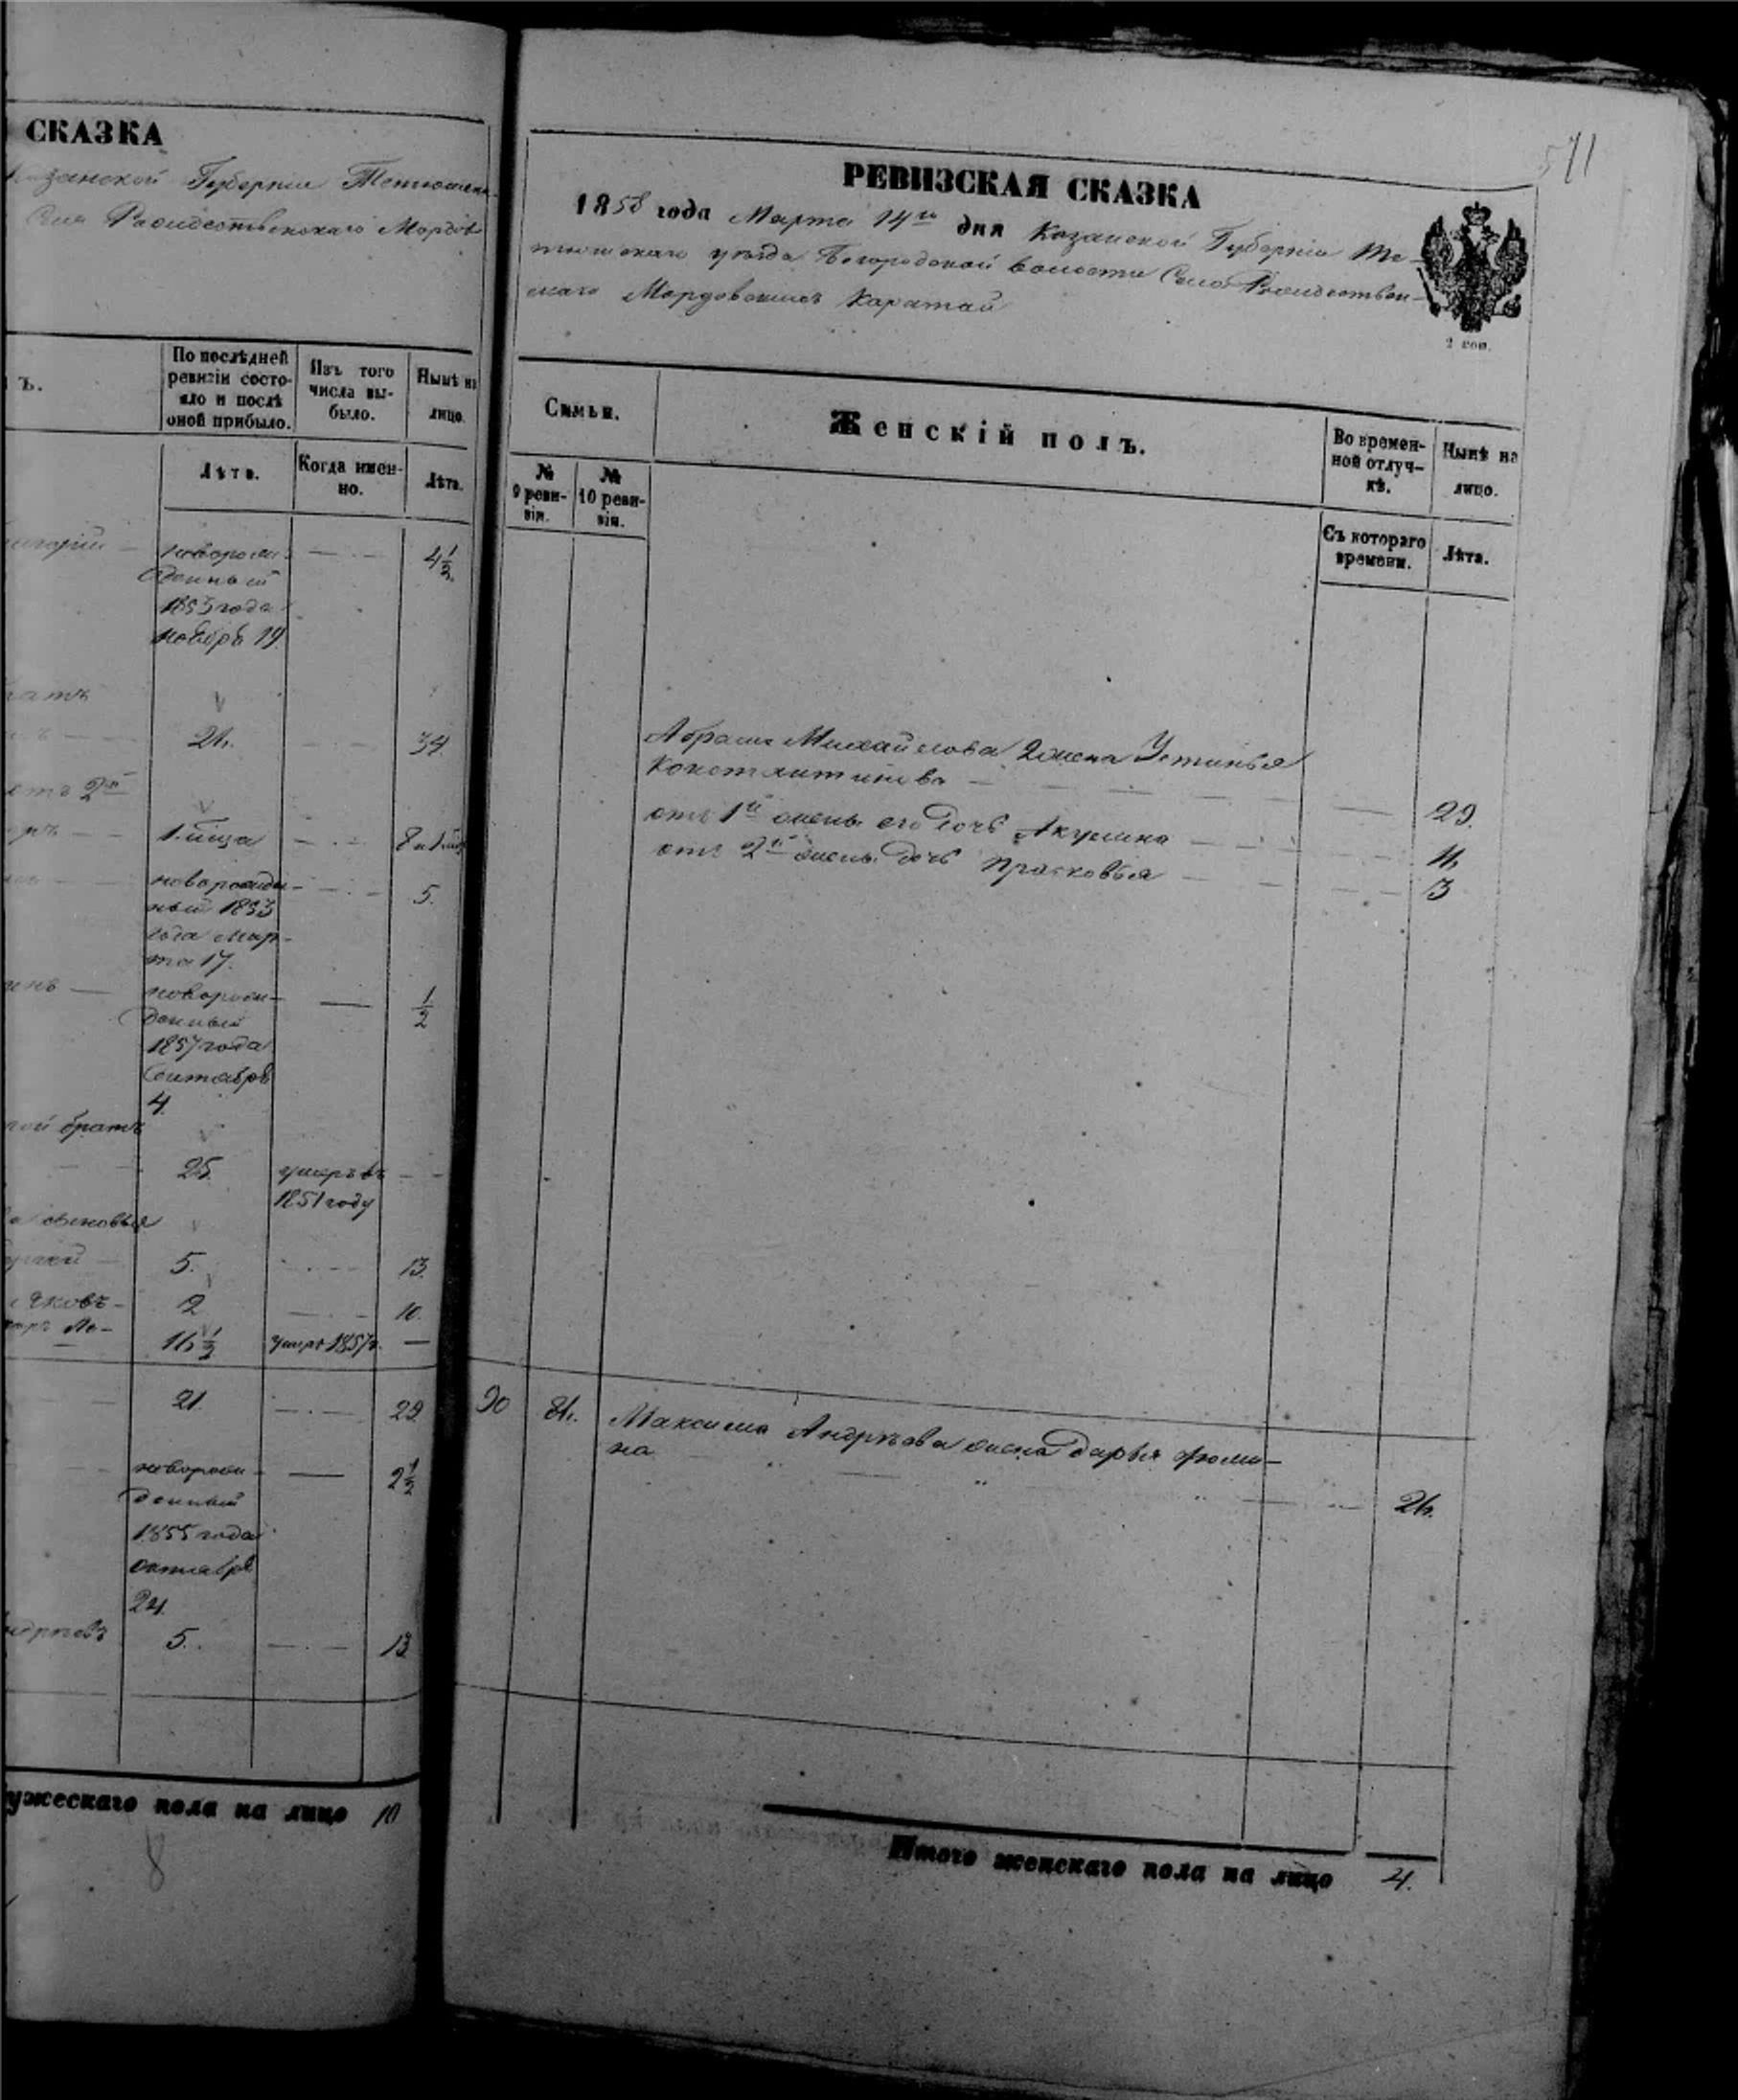 СКАЗКА
Казанской Губернiи Тетюшска-
Села Рождественскаго Мордов
ъ.
По послѣдней
ревизiи состо-
яло и послѣ
оной прибыло.
Изъ того
числа вы-
было.
Нынѣ на
лицо.
Лѣта.
Когда имен-
но.
Лѣта.
новорож-
денный
1853 года
ноябрь 19.
4½
21.
34.
отъ 2й
1. мѣсяца
новорожден-
ный 1853
года Мар-
та 17.
5.
новорож-
денный
1857 года
Сентябрь
4.
1/2
братъ
25.
умеръ въ
1851 году
сыновья
5.
13.
Яковъ
2
10.
16½
умеръ 1857 г.
21.
29.
новорож-
денный
1855 года
октябрь
24.
2½
Андрѣевъ
5.
13
мужескаго пола на лицо 10
8
571
РЕВИЗСКАЯ СКАЗКА
1858 года Марта 14го дня Казанской Губернiи Те-
тюшскаго уѣзда Богородской волости Села Рождествен-
скаго Мордовскихъ Каратай
2 коп.
Семьи.
Женскiй полъ.
Во времен-
ной отлуч-
кѣ.
Нынѣ на
лицо.
№
9 реви-
зiи.
№
10 реви-
зiи.
Съ котораго
времени.
Лѣта.
Абрама Михайлова 2 жена Устинья
Константинова
29.
отъ 1й жены его дочь Акулина
11.
отъ 2й жены дочь Прасковья
3
90
81.
Максима Андрѣева жена Дарья Фоми-
на
26.
Итого женскаго пола на лицо 4.